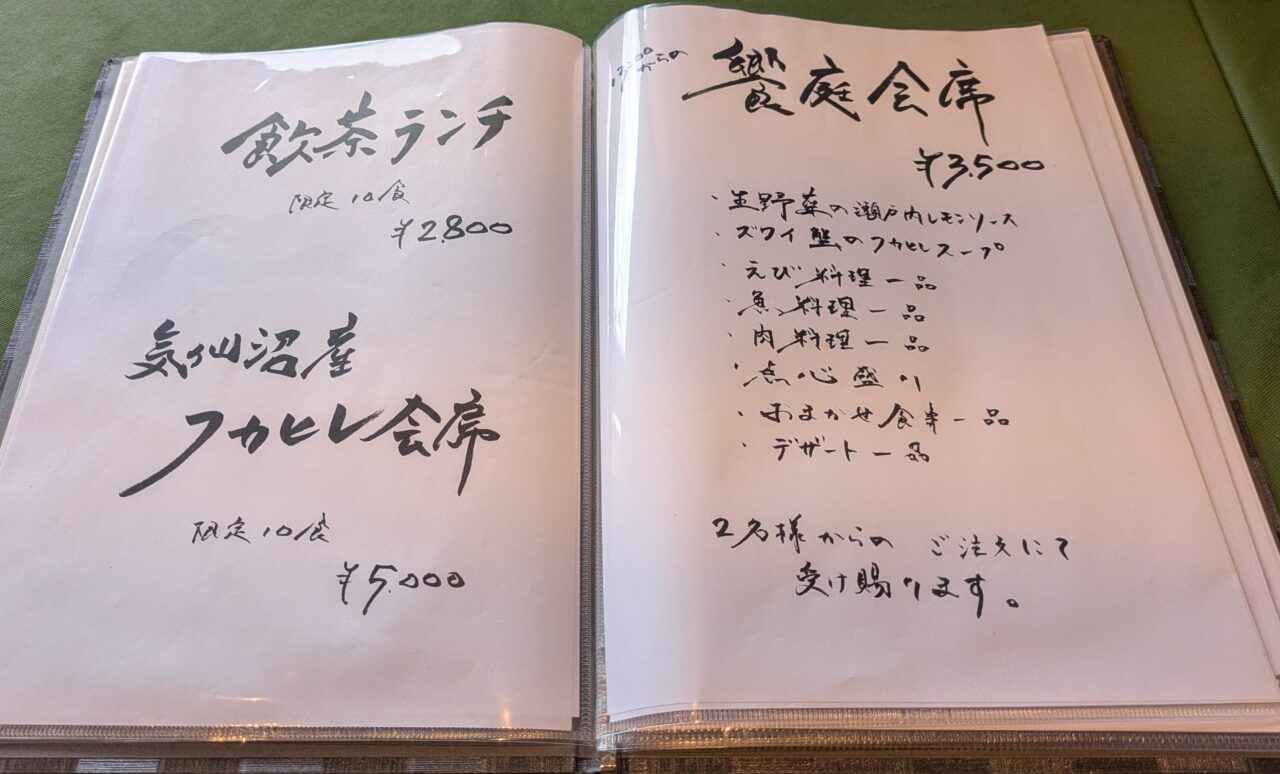 飲茶ランチ
限定10食
¥2,800
気仙沼産
フカヒレ会席
限定10食
¥5,000
13:00
からの
饗庭会席
¥3,500
・生野菜の瀬戸内レモンソース
・ズワイ蟹のフカヒレスープ
・えび料理一品
・魚料理一品
・肉料理一品
・点心盛り
・おまかせ食事一品
・デザート一品
2名様からの ご注文にて
受け賜ります。